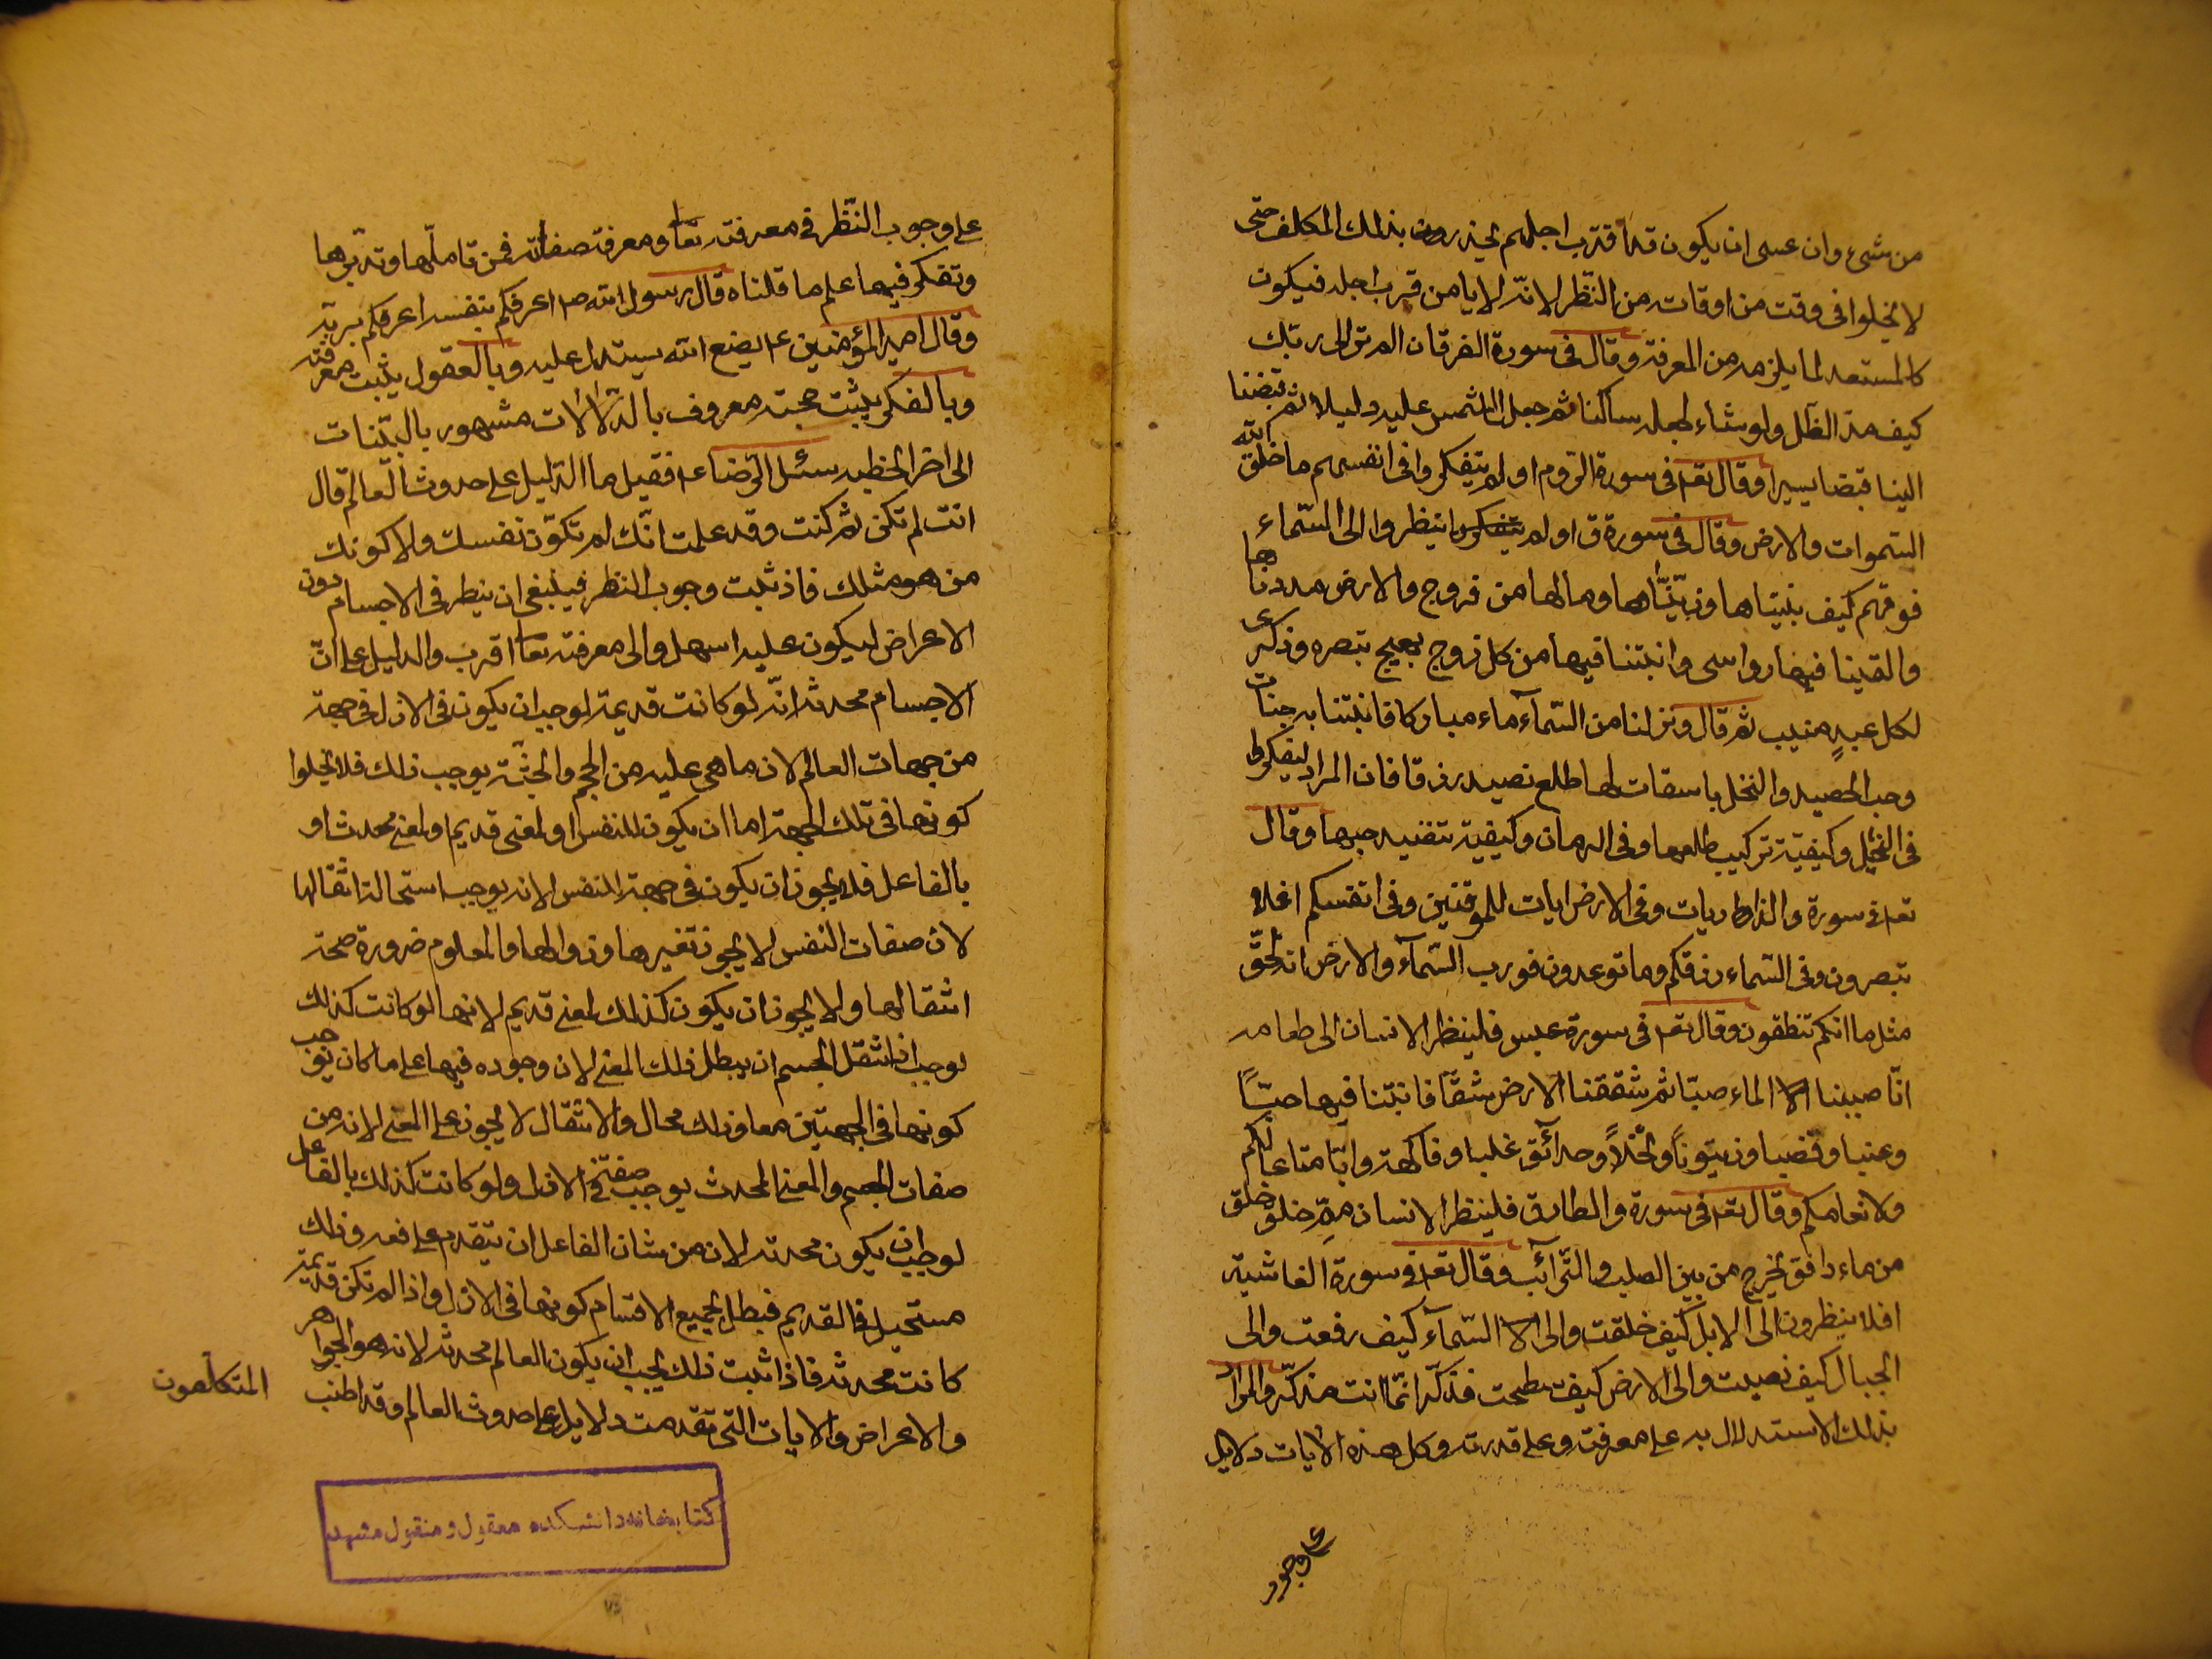 من شىء وان عسى ان يكون قد اقترب اجلهم يحذرون بذلك المكلف حتى
لا يخلوا فى وقت من اوقاته من النّظر لانّه لا يامن قرب اجله فيكون
كالمستعد لما يلزمه من المعرفة وقال فى سورة الفرقان الم تر الى ربّك
كيف مدّ الظّل ولو شاء لجعله ساكنا ثم جعل الشمس عليه دليلا ثم قبضنا
الينا قبضا يسيرا وقال تعه فى سورة الرّوم اولم يتفكروا فى انفسهم ما خلق الله
السّموات والارض وقال فى سورة ق اولم ينظروا الى السّماء
فوقهم كيف بنيناها وزيّنّاها ومالها من فروج والارض مددناها
والقينا فيها رواسى وانبتنا فيها من كل زوج بهيج تبصره وذكرى
لكل عبدٍ منيب ثم قال ونزلنا من السّمآء ماء مباركا فانبتنا به جنات
وحب الحصيد والنخل باسقات لها طلع نضيد رزقا فان المراد ليفكروا
فى النخيل وكيفيّة تركيب طلعها وفى الرمان وكيفية تنضيد حبها وقال
تعه فى سورة والذاريات وفى الارض ايات للموقنين وفى انفسكم افلا
تبصرون وفى السّماء رزقكم وما توعدون فورب السّمآء والارض انه لحقّ
مثل ما انكم تنطقون وقال تعه فى سورة عبس فلينظر الانسان الى طعامه
انّا صببنا الماء صبّا ثم شققنا الارض شقّا فانبتنا فيها حبّاً
وعنبا وقضبا وزيتوناً ونخلاً وحدآئق غلبا وفاكهة وابّا متاعا لكم
ولانعامكم وقال تعه فى سورة والطارق فلينظر الانسان ممّ خلق خلق
من ماء دافق يخرج من بين الصلب والتّرآئب وقال تعه فى سورة الغاشية
افلا ينظرون الى الابل كيف خلقت والى السّمآء كيف رفعت والى
الجبال كيف نصبت والى الارض كيف سطحت فذكّر انّما انت مذكّر والمراد
بذلك الاستدلال به على معرفته وعلى قدرته وكل هذه الايات دلايل
على وجوب
على وجوب النّظر فى معرفته تعا ومعرفة صفاته فمن تاملّها وتدبّرها
وتفكر فيها علم ما قلناه قال رسول الله ص اعرفكم بنفسه اعرفكم بربّه
وقال امير المؤمنين ع بصنع الله يستدل عليه وبالعقول يثبت معرفته
وبالفكر يثبت حجته معروف بالدّلالات مشهور بالبيّنات
الى اخر الخطبه سئل الرّضا ع فقيل ما الدّليل على حدوث العالم قال
انت لم تكن ثم كنت وقد علمت انّك لم تكوّن نفسك ولا كونك
من هو مثلك فاذ ثبت وجوب النظر فينبغى ان ينظر فى الاجسام دون
الاعراض ليكون عليه اسهل والى معرفته تعا اقرب والدليل على انّ
الاجسام محدثه انّه لو كانت قديمة لوجب ان يكون فى الازل فى جهة
من جهات العالم لان ما هى عليه من الحجم والجثّة يوجب ذلك فلا يخلوا
كونها فى تلك الجهة اما ان يكون للنفس او لمعنى قديم او لمعنى محدث او
بالفاعل فلا يجوز ان يكون فى جهة للنفس لانه يوجب استحالة انتقالها
لان صفات النفس لا يجوز تغيرها وزوالها والمعلوم ضرورة صحة
انتقالها ولا يجوز ان يكون كذلك لمعنى قديم لانها لو كانت كذلك
لوجب اذا انتقل الجسم ان يبطل ذلك المعنى لان وجوده فيها على ما كان يوجب
كونها فى الجهتين معا وذلك محال والانتقال لا يجوز على المعنى لانه من
صفات الجسم والمعنى المحدث يوجب صفته فى الازل ولو كانت كذلك بالفاعل
لوجب ان يكون محدثه لان من شان الفاعل ان يتقدم على فعله وذلك
مستحيل فى القديم فبطل بجميع الاقسام كونها فى الازل واذا لم تكن قديمة
كانت محدثه فاذا ثبت ذلك يجب ان يكون العالم محدثه لانه هو الجواهر
والاعراض والايات التى تقدمت دلايل على حدوث العالم وقد اطنب
المتكلّمون
كتابخانه دانشكده معقول و منقول مشهد